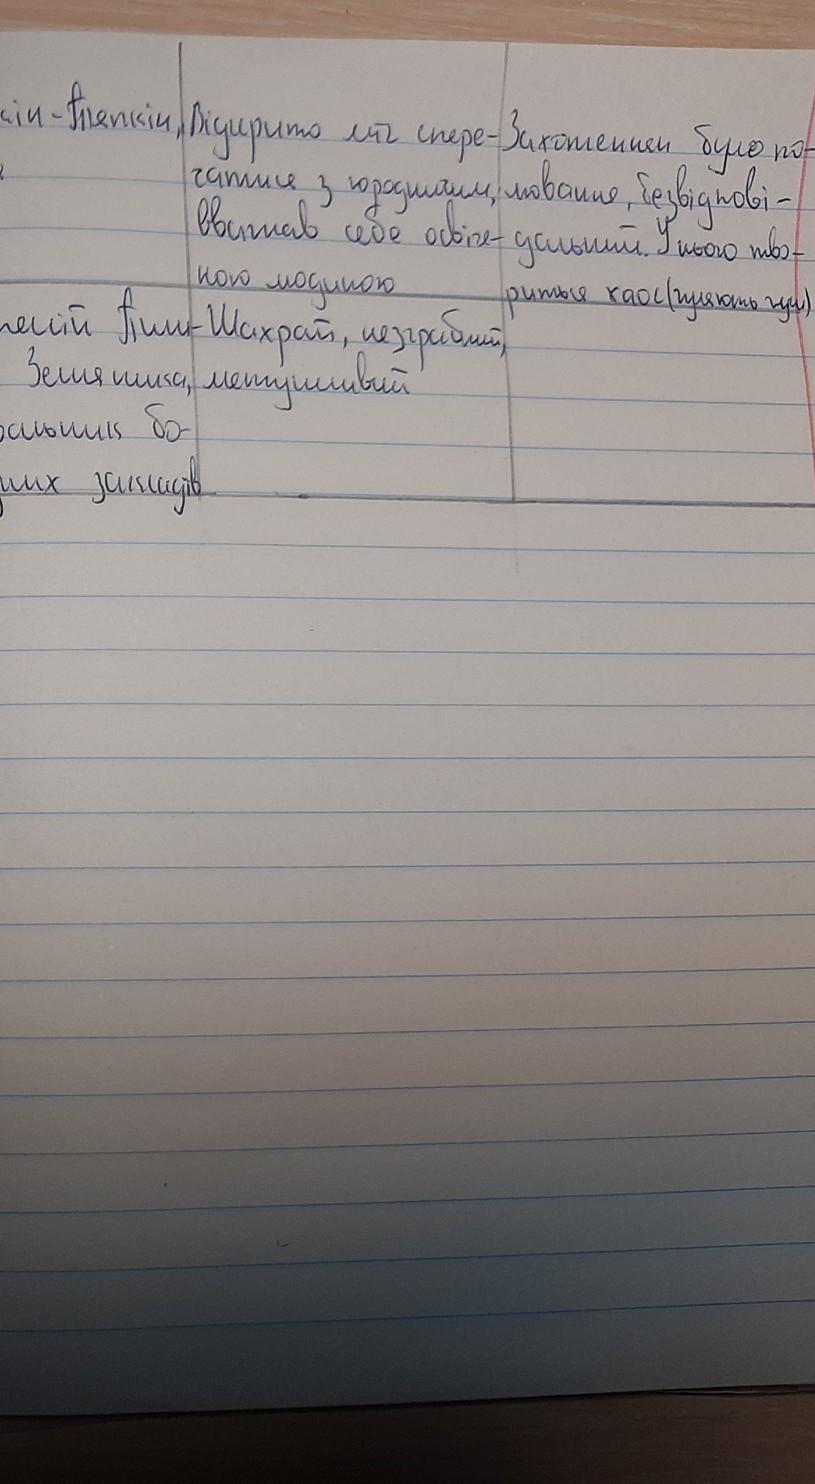 кін-Тяпкін, Відкрито міг спере- Захопленням було по-
чатися з городничим, лювання, безвідпові-
Вважав себе освіче- дальний. У нього тво-
ною людиною риться хаос (гуляють гуси)
Пили- Шахрай, незграбний,
Земляника, метушливий
бо-
закладів